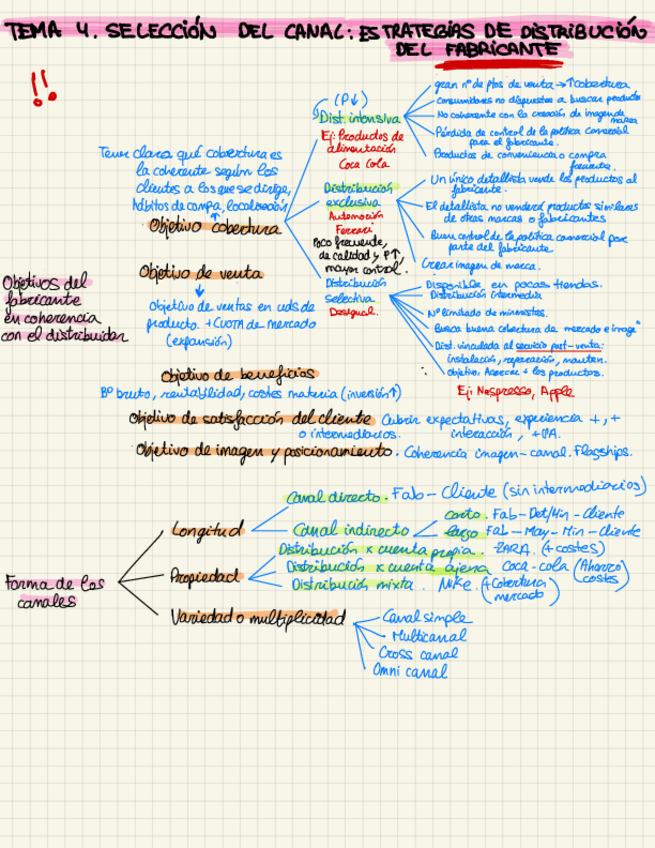 TEMA 4. SELECCIÓN DEL CANAL: ESTRATEGIAS DE DISTRIBUCIÓN
DEL FABRICANTE
!!
Objetivos del
fabricante
en coherencia
con el distribuidor
Tener claro qué cobertura es
la coherente según los
clientes a los que se dirige,
hábitos de compra, localización
Objetivo cobertura
(P↓)
Dist. intensiva
Ej: Productos de
alimentación
Coca Cola
gran nº de ptos de venta → ↑cobertura
Consumidores no dispuestos a buscar producto
No coherente con la creación de imagen de
marca
Pérdida de control de la política comercial
para el fabricante.
Productos de conveniencia o compra
frecuente.
Distribución
exclusiva
Automoción
Ferrari
Poco frecuente,
de calidad y P↑,
mayor control.
Un único detallista vende los productos al
fabricante.
El detallista no venderá productos similares
de otras marcas o fabricantes
Buen control de la política comercial por
parte del fabricante
Crear imagen de marca.
Distribución
Selectiva
Desigual.
Disponible en pocas tiendas.
Distribución intermedia
Nº limitado de minoristas.
Busca buena cobertura de mercado e imagº
Dist. vinculada al servicio post-venta:
instalación, reparación, manten.
objetivo: Acercar + los productos.
Ej: Nespresso, Apple
Objetivo de venta
↓
Objetivo de ventas en uds de
producto. + CUOTA de mercado
(expansión)
Objetivo de beneficios
Bº bruto, rentabilidad, costes materia (inversión↑)
Objetivo de satisfacción del cliente Cubrir expectativas, experiencia +, +
o intermediarios. interacción,
Objetivo de imagen y posicionamiento. Coherencia imagen-canal. Flagships.
Forma de los
canales
Longitud
Canal directo. Fab - Cliente (sin intermediarios)
Canal indirecto
corto. Fab-Det/Min-Cliente
largo Fab-May-Min-Cliente
Propiedad
Distribución x cuenta propia. ZARA. (+costes)
Distribución x cuenta ajena Coca-cola (Ahorro
costes)
Distribución mixta. Nike. (+Cobertura
mercado)
Variedad o multiplicidad
Canal simple
Multicanal
Cross canal
Omni canal